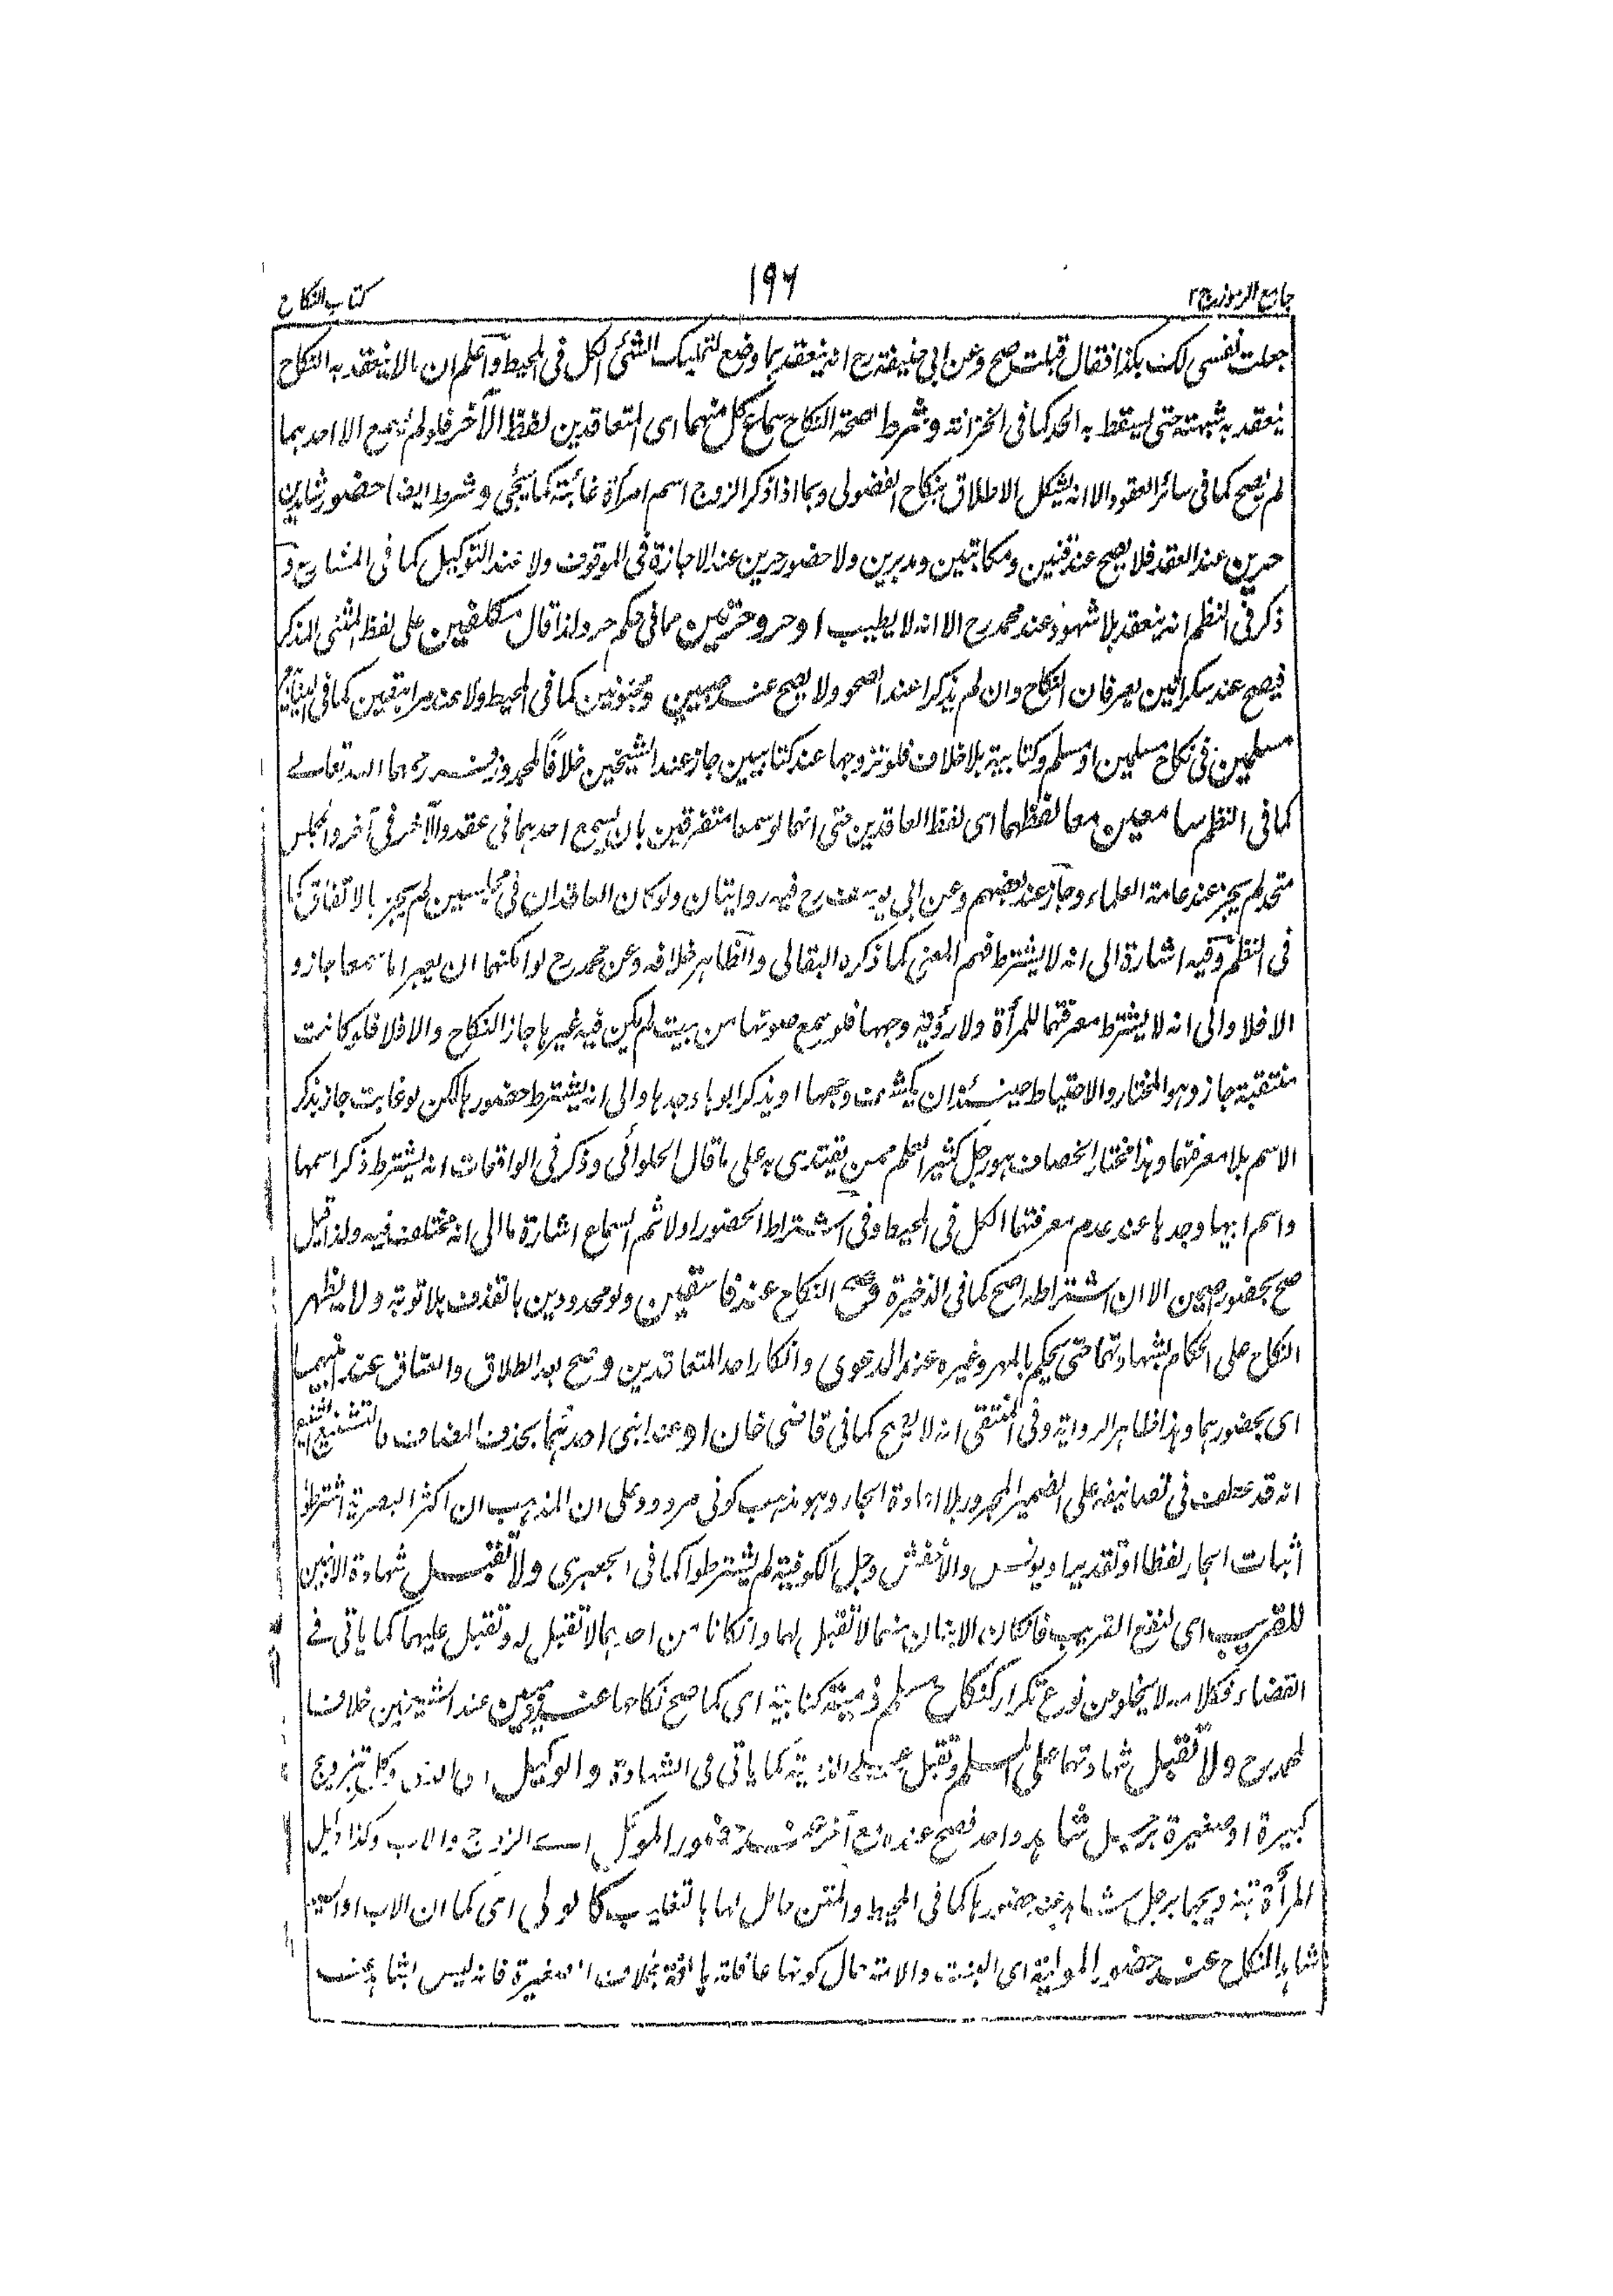 جامع الرموز ج٢
١٩٦
كتاب النكاح
جعلت نفسى لك بكذا فقال قبلت صح وعن ابى حنيفة رح انه ينعقد بما وضع لتمليك الشئ الكل فى المحيط واعلم ان ما لا ينعقد به النكاح
ينعقد به شبهته حتى يسقط به الحد كما فى الخزانة وشرط لصحة النكاح سماع كل منهما اى المتعاقدين لفظ الآخر فلو لم يسمع الا احدهما
لم يصح كما فى سائر العقود الا انه يشكل الاطلاق بنكاح الفضولى وبما اذا ذكر الزوج اسم امرأة غائبة كما يجئ وشرط ايضا حضور شاهدين
حرين عند العقد فلا يصح عند قنين ومكاتبين ومدبرين ولا حضور حرين عند الاجازة فى الموقوف ولا عند التوكيل كما فى المشارع و
ذكر فى النظم انه ينعقد بلا شهود عند محمد رح الا انه لا يطيب او حر وحرتين مما فى حكم حر ولذا قال مكلفين على لفظ المثنى المذكر
فيصح عند سكرانين يعرفان النكاح وان لم يذكرا عند الصحو ولا يصح عند صبيين ومجنونين كما فى المحيط ولا عند مراهقين كما فى
مسلمين فى نكاح مسلمين او مسلم وكتابية بلا خلاف فلو تزوجها عند كتابيين جاز عند الشيخين خلافا لمحمد وزفر رحمهما الله تعالى
كما فى النظم سامعين معا لفظهما اى لفظ العاقدين حتى انهما لو سمعا متفرقين بان يسمع احدهما فى عقد والآخر فى آخر والمجلس
متحد لم يجز عند عامة العلماء وجاز عند بعضهم وعن ابى يوسف رح فيه روايتان ولو كان العاقدان فى مجلسين لم يجز بالاتفاق كما
فى النظم وفيه اشارة الى انه لا يشترط فهم المعنى كما ذكره البقالى والظاهر خلافه وعن محمد رح لو امكنهما ان يعبرا ما سمعا جاز و
الا فلا والى انه لا يشترط معرفتهما للمرأة ولا رؤية وجهها فلو سمع صوتها من بيت لم يكن فيه غيرها جاز النكاح والا فلا فلو كانت
منتقبة جاز وهو المختار والاحتياط حينئذ ان يكشف وجهها او يذكر ابوها وجدها والى انه يشترط حضورها لكن لو غابت جاز بذكر
الاسم بلا معرفتهما وهذا مختار الخصاف هو رجل كثير العلم ممن يقتدى به على ما قال الحلوائى وذكر فى الواقعات انه يشترط ذكر اسمها
واسم ابيها وجدها عند عدم معرفتهما الكل فى المحيط وفى اشتراط الحضور اولا ثم السماع اشارة ما الى انه مختلف فيه ولذا قيل
صح بحضور اصمين الا ان اشتراطه اصح كما فى الذخيرة وصح النكاح عند فاسقين ولو محدودين بالقذف بلا توبة ولا يظهر
النكاح على الحكام بشهادتهما حتى يحكم بالمهر وغيره عند الدعوى وانكار احد المتعاقدين وصح بعد الطلاق والعتاق عند ابنيهما
اى بحضورهما وهذا ظاهر الرواية وفى المنتقى انه لا يصح كما فى قاضى خان او عند ابنى احدهما بحذف المضاف
انه قد عطف فى تصانيفه على الضمير المجرور بلا اعادة الجار وهو مذهب كوفى مردود على ان المذهب ان اكثر البصرية اشترطوا
اثبات الجار لفظا او تقديرا ويونس والاخفش وجل الكوفية لم يشترطوا كما فى الجعبرى ولا تقبل شهادة الابنين
للقريب اى لنفع القريب فان كان الابنان منهما لا تقبل لهما وان كانا من احدهما لا تقبل له وتقبل عليهما كما ياتى فى
القضاء فكلامه لا يخلو عن نوع تكرار كنكاح مسلم ذمية كتابية اى كما صح نكاحهما عند ذميين عند الشيخين خلافا
لمحمد رح ولا تقبل شهادتهما على المسلم وتقبل على الذمية كما ياتى فى الشهادة والوكيل اى الذى وكل بتزويج
كبيرة او صغيرة برجل شاهد واحد فصح عنده مع آخر عند حضور الموكل اى الزوج والاب وكذا وكيل
المرأة بتزويجها برجل شاهد عند حضورها كما فى المحيط والمتن مائل لها بالتغليب كالولى اى كما ان الاب
شاهد النكاح عند حضور المولية اى البنت والامة حال كونها عاقلة بالغة بخلاف الصغيرة فانه ليس بشاهد عند